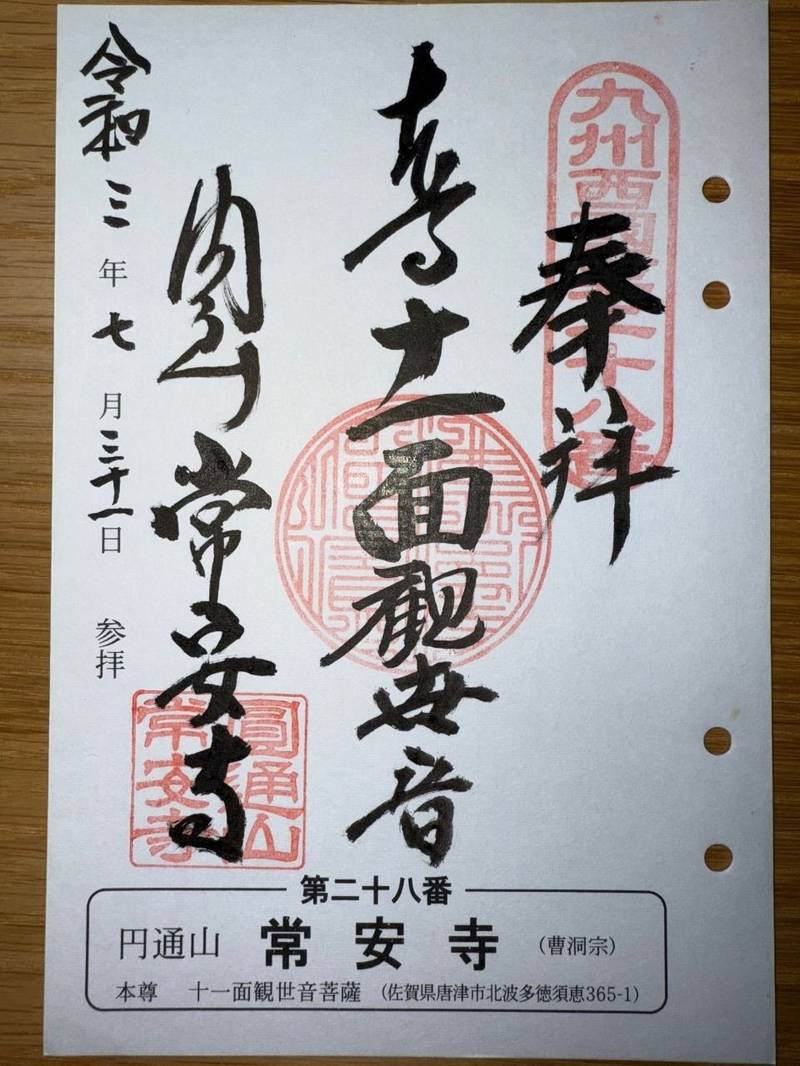 九州西國第二十八番
奉拝
十一面観世音
円通山 常安寺
圓通山
常安寺
令和三年七月三十一日 参拝
第二十八番
円通山 常安寺 (曹洞宗)
本尊 十一面観世音菩薩 (佐賀県唐津市北波多徳須恵365-1)